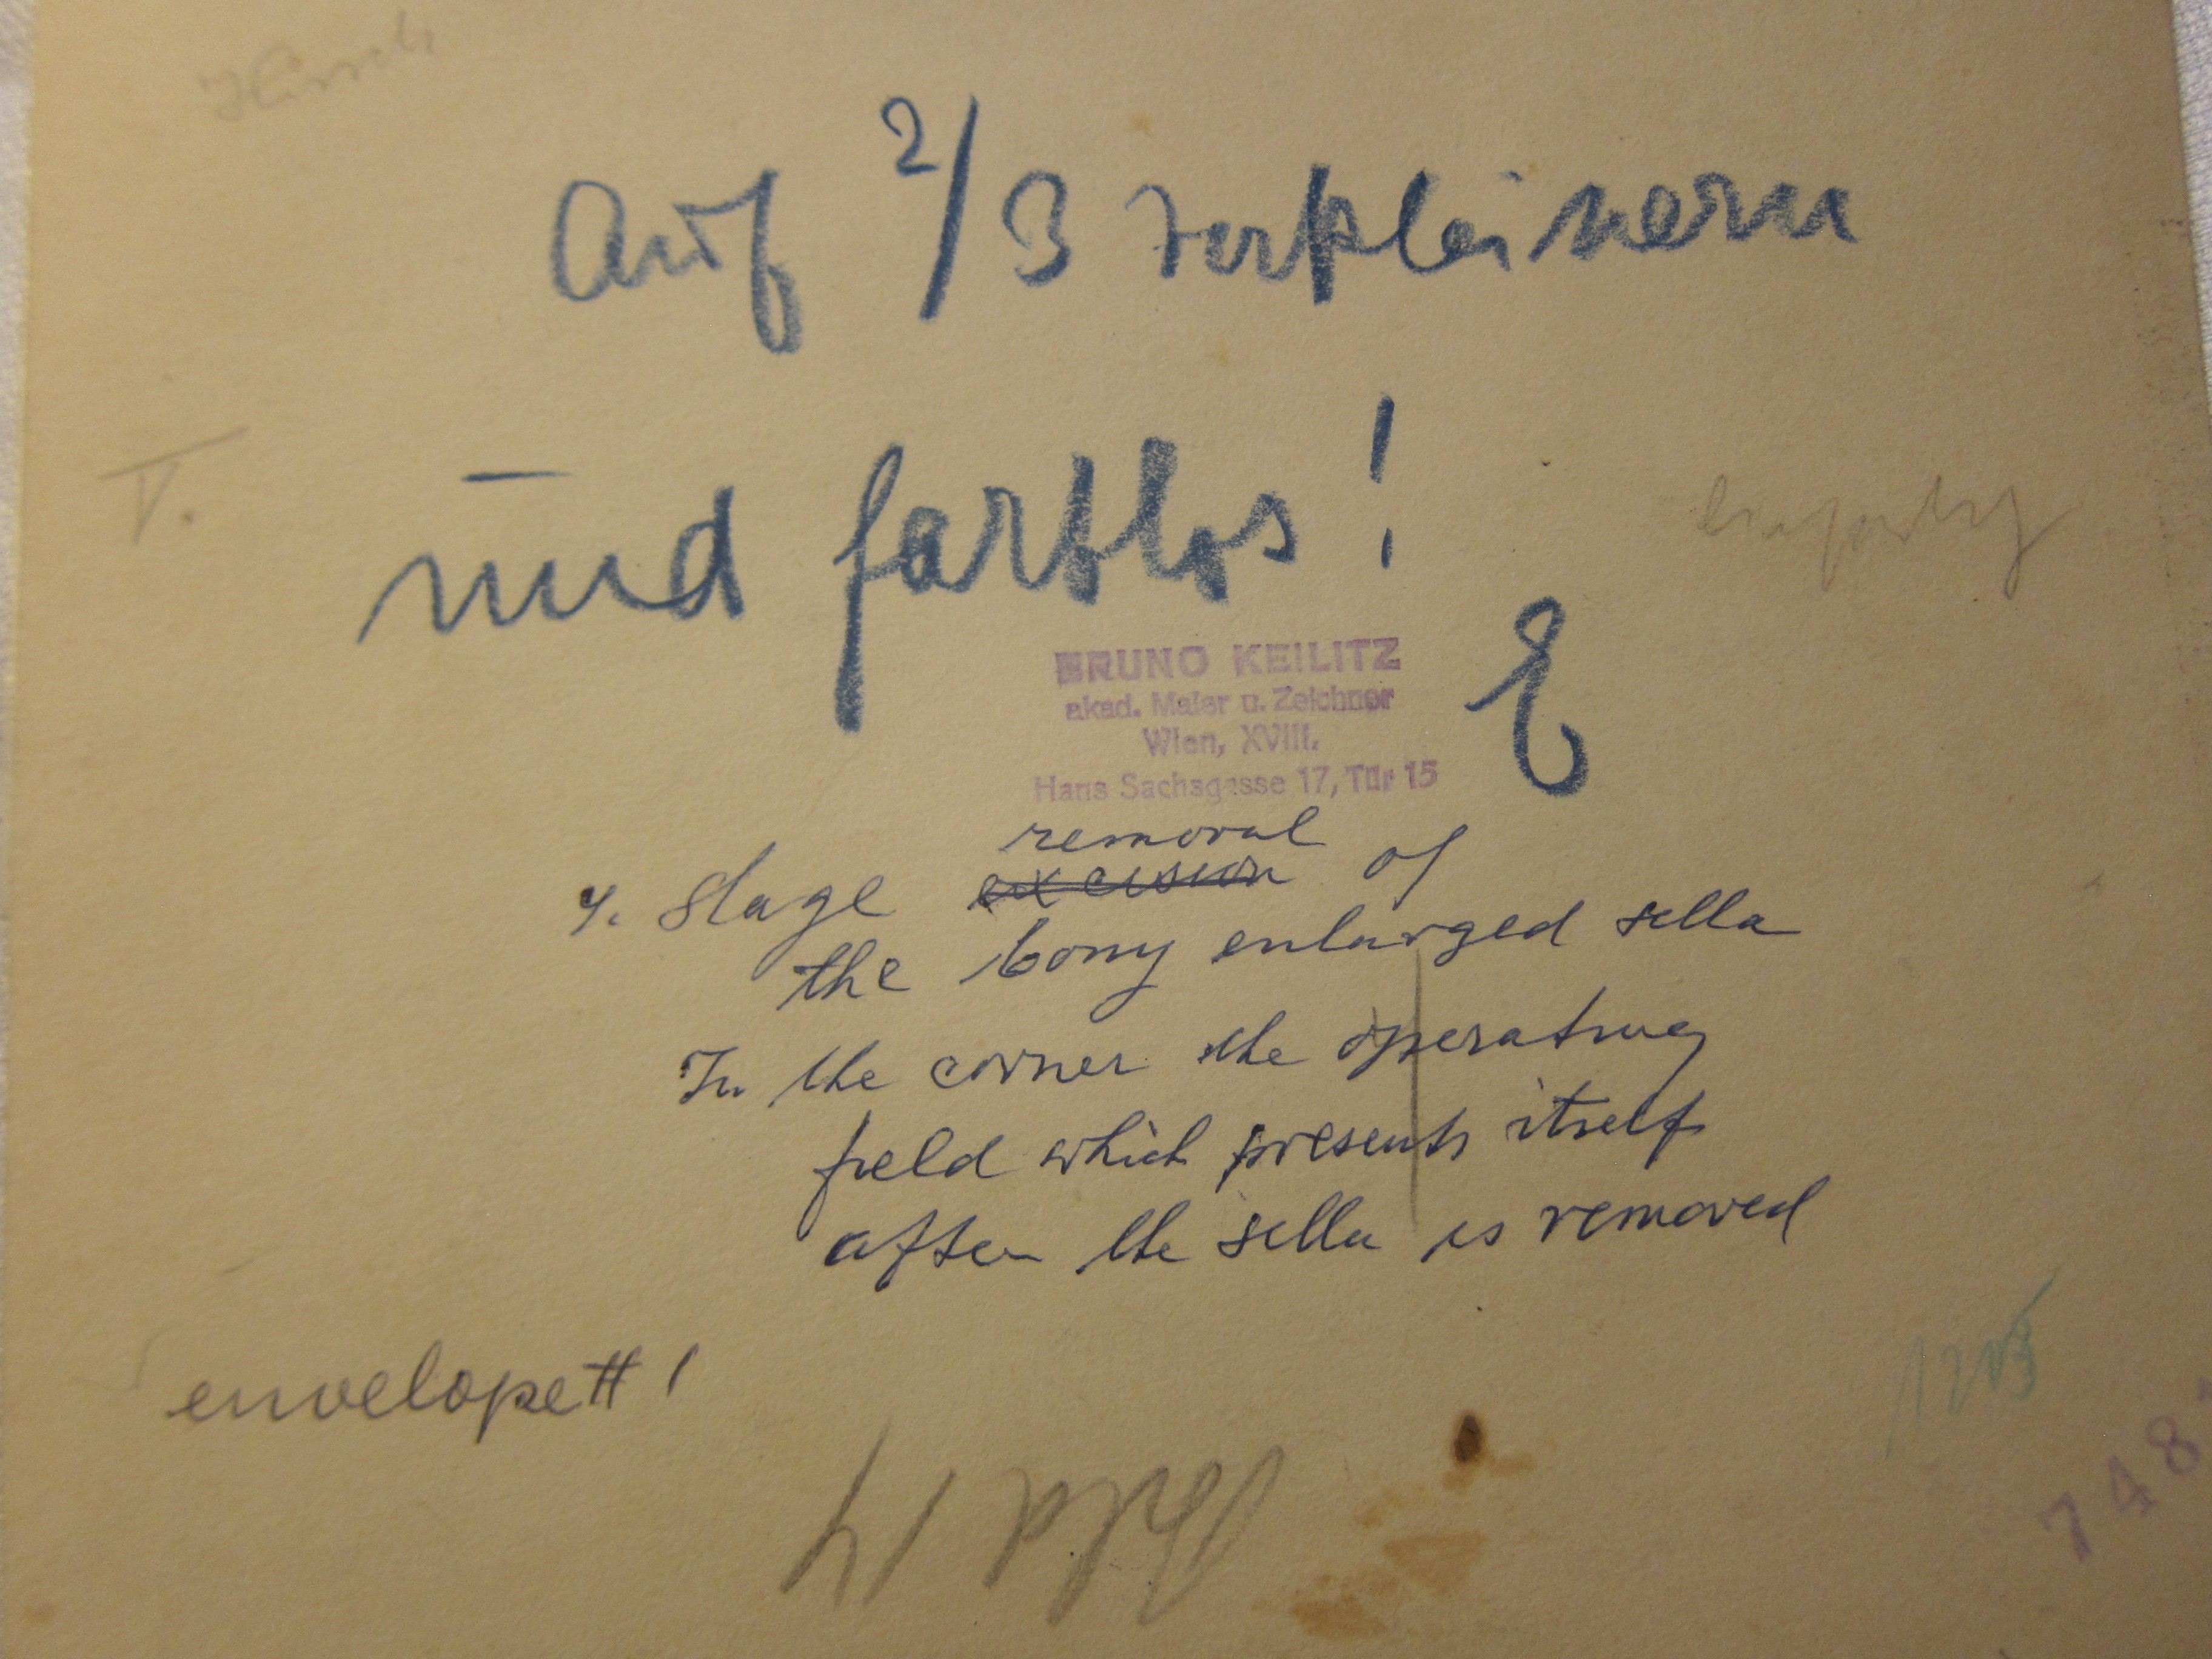 Hirsch
auf 2/3 verkleinern
V.
und farblos!
E
BRUNO KEILITZ
akad. Maler u. Zeichner
Wien, XVIII.
Hans Sachsgasse 17, Tür 15
removal
4. Stage excision of
the bony enlarged sella
In the corner the operating
field which presents itself
after the sella is removed
envelope #1
1205
748